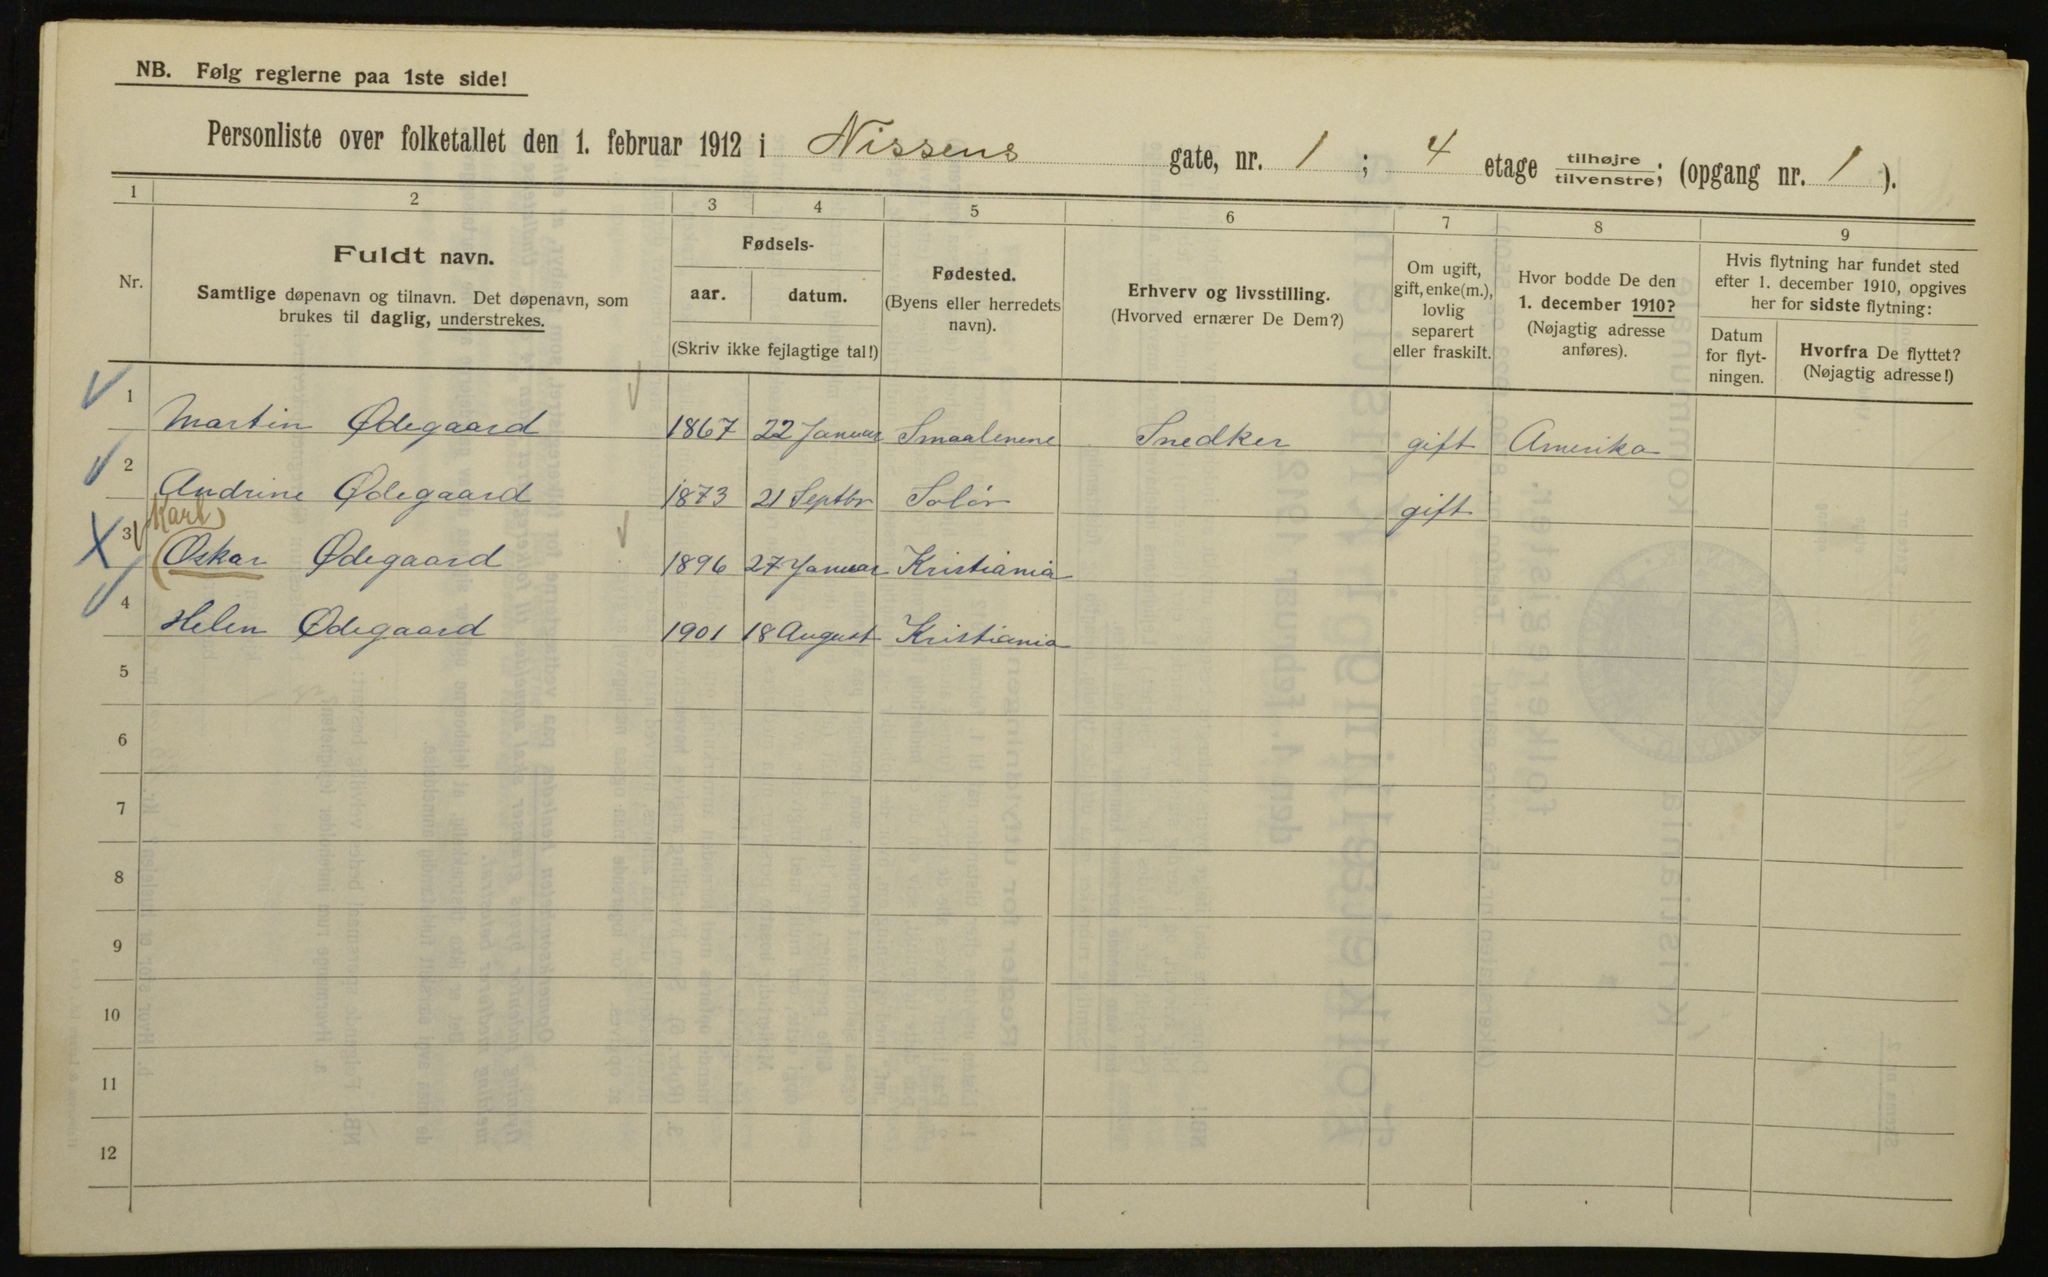 NB. Følg reglerne paa 1ste side!
Personliste over folketallet den 1. februar 1912 i Nissens gate, nr. 1 ; 4 etage tilhøjre tilvenstre; (opgang nr. 1 ).
1 2 3 4 5 6 7 8 9
Nr.
Fuldt navn.
Samtlige døpenavn og tilnavn. Det døpenavn, som
brukes til daglig, understrekes.
Fødsels-
aar. datum.
(Skriv ikke fejlagtige tal!)
Fødested.
(Byens eller herredets
navn).
Erhverv og livsstilling.
(Hvorved ernærer De Dem?)
Om ugift,
gift, enke(m.),
lovlig
separert
eller fraskilt.
Hvor bodde De den
1. december 1910?
(Nøjagtig adresse
anføres).
Hvis flytning har fundet sted
efter 1. december 1910, opgives
her for sidste flytning:
Datum
for flyt-
ningen.
Hvorfra De flyttet?
(Nøjagtig adresse!)
1 Martin Ødegaard 1867 22 Januar Smaalenene Snedker gift Amerika
2 Andrine Ødegaard 1873 21 Septbr Solør gift
Karl
3 Oskar Ødegaard 1896 27 Januar Kristiania
4 Helen Ødegaard 1901 18 August Kristiania
5
6
7
8
9
10
11
12